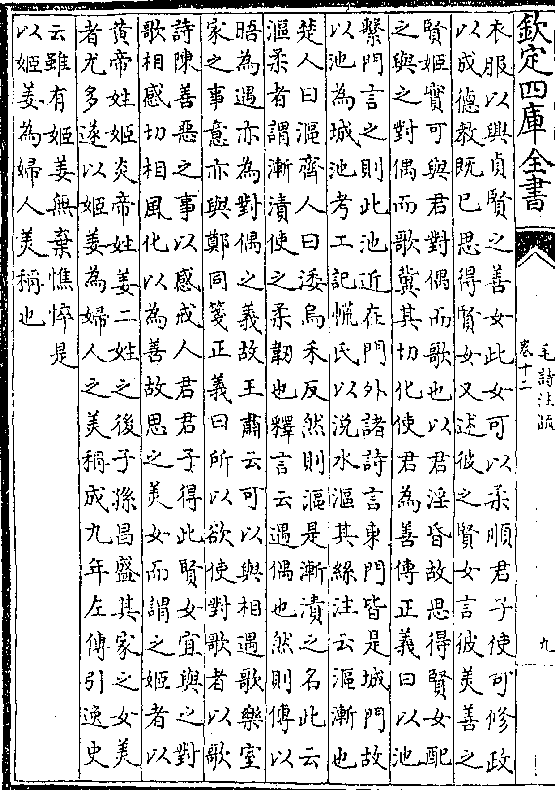 欽定四庫全書
毛詩注疏
卷十二
九
衣服以與貞賢之善女此女可以柔順君子使可修政
以成德教既已思得賢女又述彼之賢女言彼美善之
賢姬實可與君對偶而歌也以君淫昏故思得賢女配
之與之對偶而歌冀其切化使君為善傳正義曰以池
繫門言之則此池近在門外諸詩言東門皆是城門故
以池為城池考工記㡛氏以涚水漚其絲注云漚漸也
楚人曰漚齊人曰涹烏禾反然則漚是漸漬之名此云
漚柔者謂漸漬使之柔韌也釋言云遇偶也然則傳以
晤為遇亦為對偶之義故王肅云可以與相遇歌樂室
家之事意亦與鄭同箋正義曰所以欲使對歌者以歌
詩陳善惡之事以感戒人君君子得此賢女宜與之對
歌相感切相風化以為善故思之美女而謂之姬者以
黄帝姓姬炎帝姓姜二姓之後子孫昌盛其家之女美
者尤多遂以姬姜為婦人之美稱成九年左傳引逸史
云雖有姬姜無棄憔悴是
以姬姜為婦人美稱也